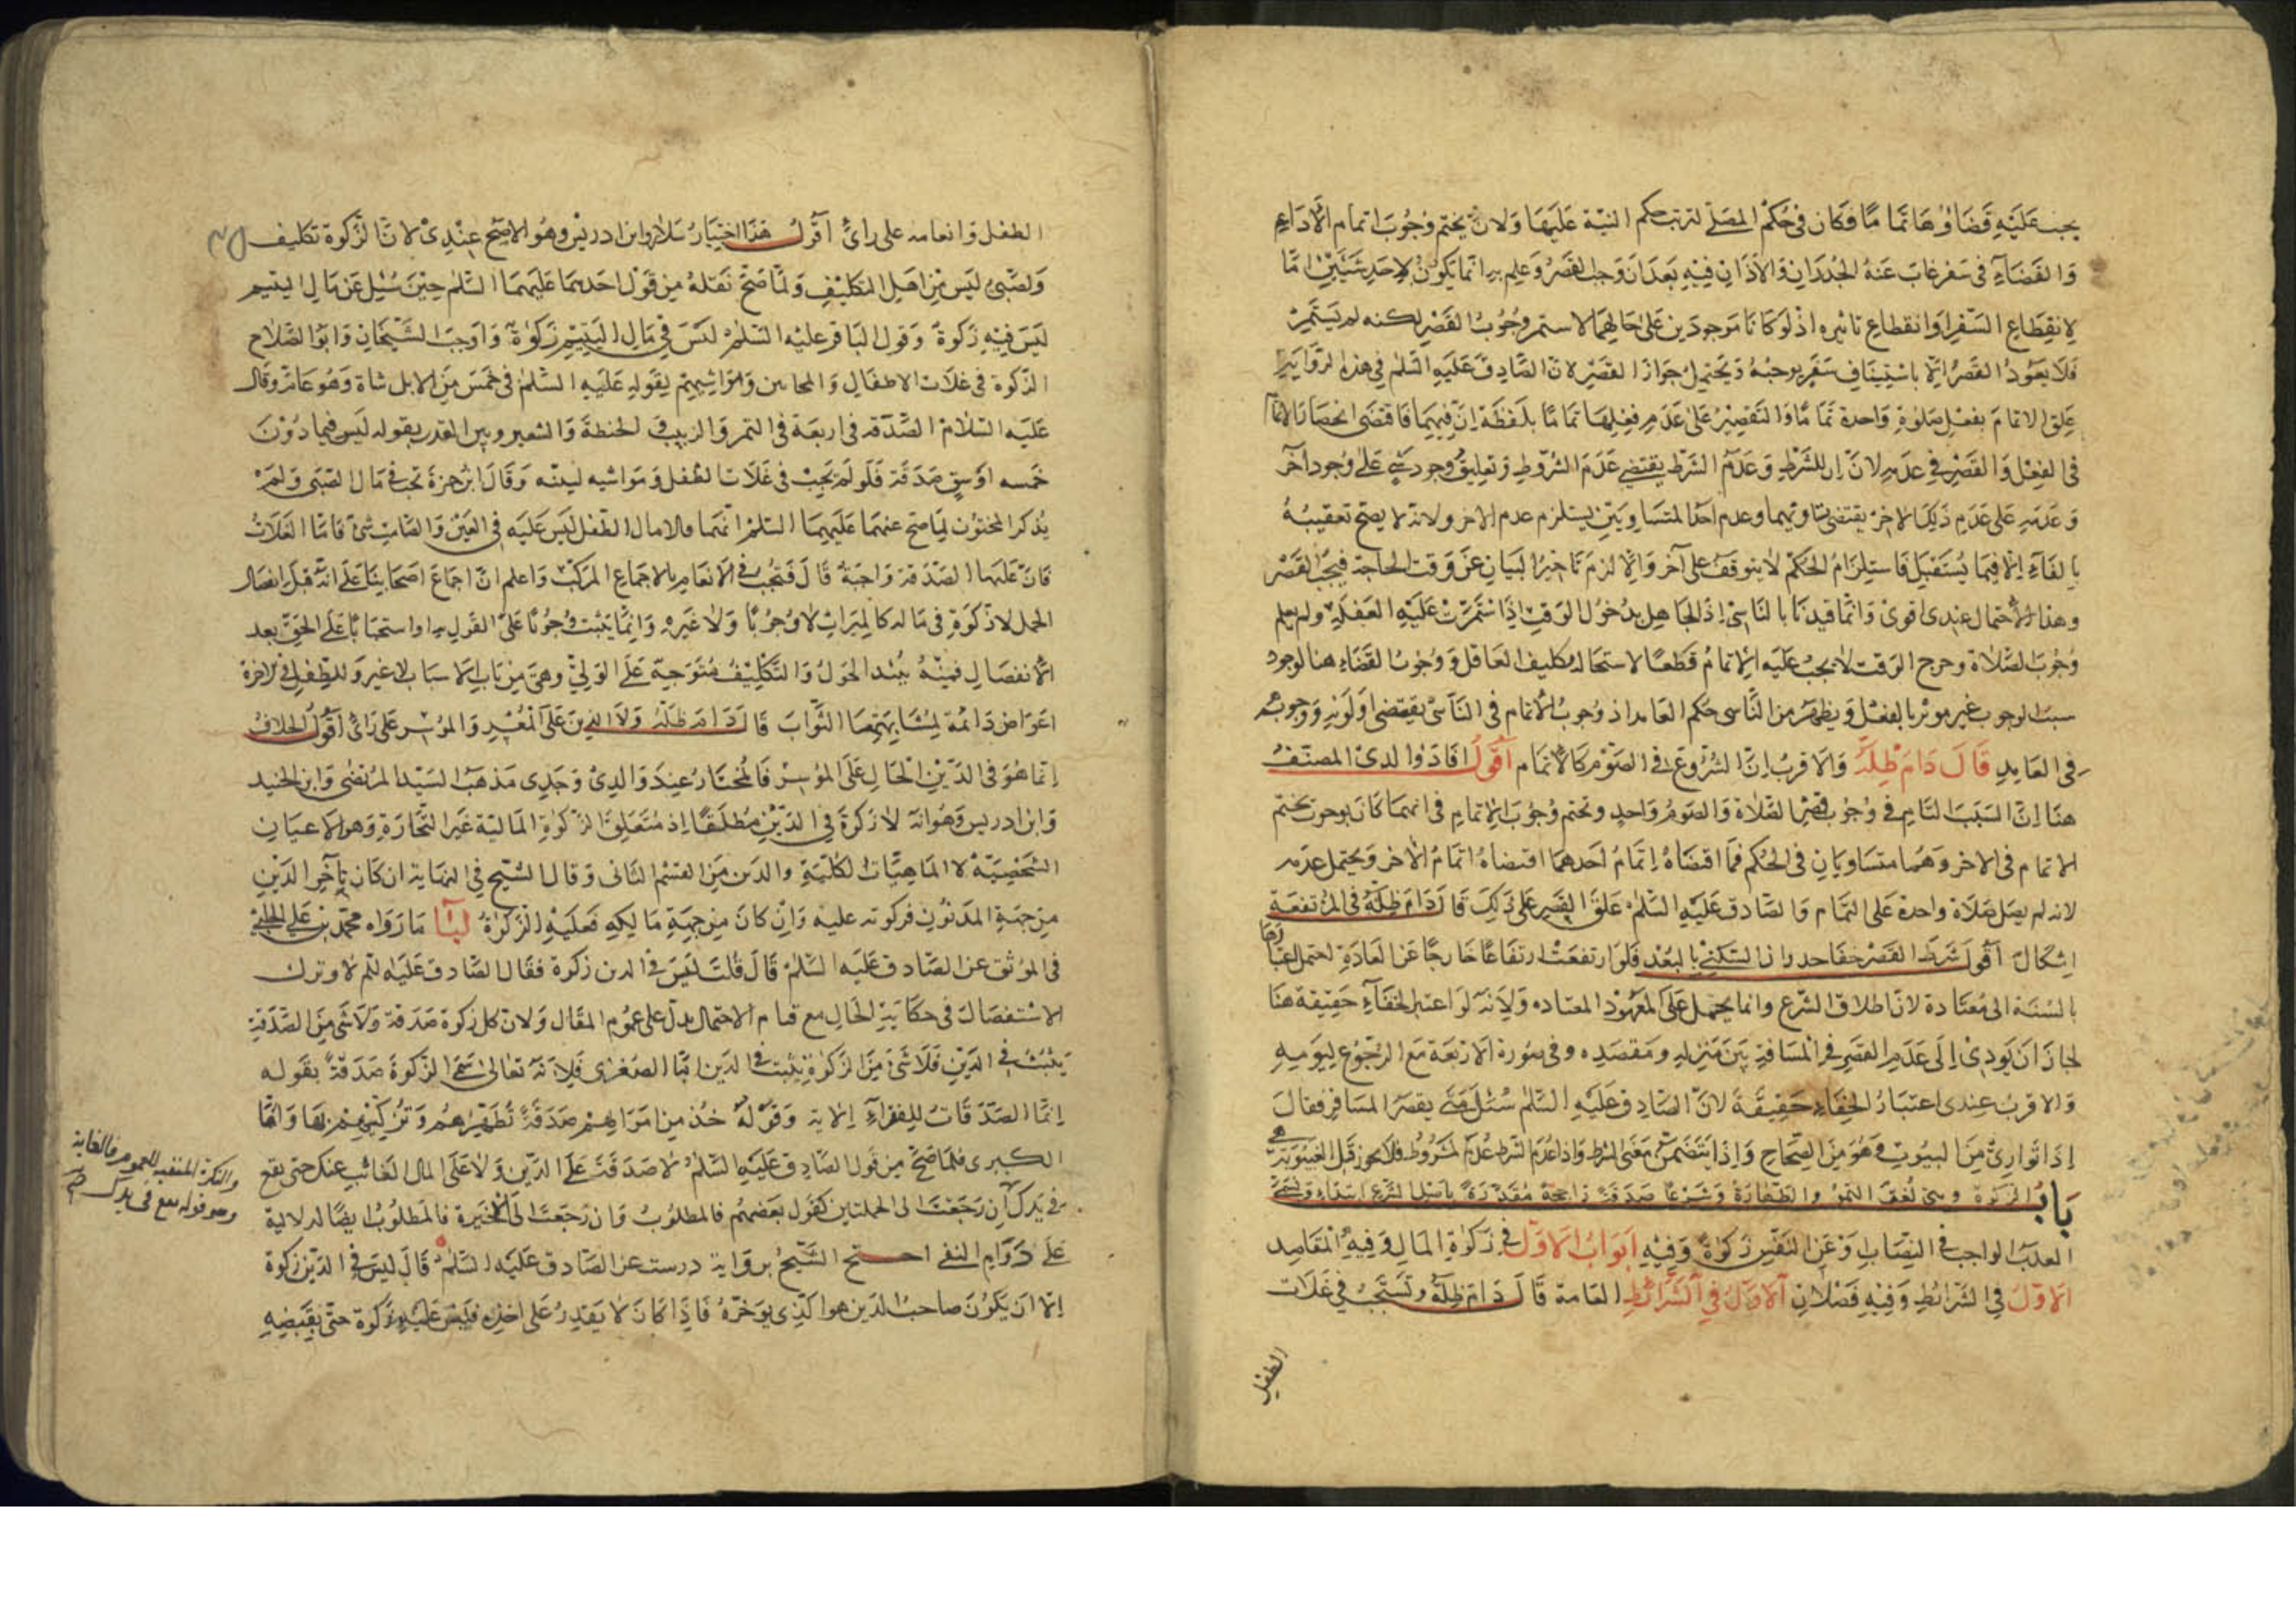 يجب عليه قضاؤها تماما فكان في حكم المصلي لترتب حكم النية عليها ولان تحتم وجوب اتمام الاداء
والقضاء في سفر غاب عنه الجدران والاذان فيه بعد ان وجب القصر وعلم به انما يكون لاحد شيئين اما
لانقطاع السفر او انقطاع تاثيره اذ لو كانا موجودين على حالهما لاستمر وجوب القصر لكنه لم يستمر
فلا يعود القصر الا باستيناف سفر يوجبه ويحتمل جواز القصر لان الصادق عليه السلم في هذه الرواية
علق الاتمام بفعل صلوة واحدة تماما والتقصير على عدم فعلها تماما بلفظة ان فيهما فاقتضى انحصار الاتمام
في الفعل والقصر في عدمه لان ان للشرط وعدم الشرط يقتضي عدم المشروط وتعليق وجود شيء على وجود آخر
وعدمه على عدم ذلك الاخر يقتضي تساويهما وعدم احد المتساويين يستلزم عدم الاخر ولانه لا يصح تعقيبه
بالفاء الا فيما يستقبل فاستلزام الحكم لا يتوقف على آخر والا لزم تاخير البيان عن وقت الحاجة فيجب القصر
وهذا الاحتمال عندي اقوى وانما قيدنا بالناسي اذ الجاهل بدخول الوقت اذا استمرت عليه الغفلة ولم يعلم
وجوب الصلاة وخرج الوقت لا يجب عليه الاتمام قطعا لاستحالة تكليف الغافل ووجوب القضاء هنا لوجود
سبب الوجوب غير موثر بالفعل ويظهر من الناسي حكم العامد اذ وجوب الاتمام في الناسي يقتضي اولوية وجوبه
في العامد قال دام ظله والاقرب ان الشروع في الصوم كالاتمام اقول افاد والدي المصنف
هنا ان السبب التام في وجوب قصر الصلاة والصوم واحد وتحتم وجوب الاتمام في احدهما يوجب تحتم
الاتمام في الاخر وهما متساويان في الحكم فما اقتضاه اتمام احدهما اقتضاه اتمام الاخر ويحتمل عدمه
لانه لم يصل صلاة واحدة على التمام والصادق عليه السلم علق القصر على ذلك قال دام ظله في المرتفعة
اشكال اقول شرط القصر خفا جدران السكنى بالبعد فلو ارتفعت ارتفاعا خارجا عن العادة احتمل اعتبارها
بالنسبة الى معتادة لان اطلاق الشرع وانما يحمل على المعهود المعتاد ولانه لو اعتبر الخفاء حقيقة هنا
لجاز ان يودي الى عدم القصر في المسافة بين منزله ومقصده وفي صورة الاربعة مع الرجوع ليومه
والاقرب عندي اعتبار الخفاء حقيقة لان الصادق عليه السلم سئل متى يقصر المسافر فقال
اذا توارى من البيوت وهو من الصحاح واذا يتضمن معنى الشرط واذا عدم الشرط عدم المشروط فلا يجوز قبل الغيبوبة
باب الزكوة وهي لغة النمو والطهارة وشرعا صدقة راجحة مقدرة باصل الشرع ابتداء
الواجب في النصاب وعن الفقير زكوة وفيه ابواب الاول في زكوة المال وفيه المقاصد
الاول في الشرائط وفيه فصلان الاول في الشرائط العامة قال دام ظله وتستحب في غلات
الطفل
الطفل وانعامه على رائ اقول هذا اختيار سلار وابن ادريس وهو الاصح عندي لان الزكوة تكليف
والصبي ليس من اهل التكليف ولما صح نقله من قول احدهما عليهما السلم حين سئل عن مال اليتيم
ليس فيه زكوة وقول الباقر عليه السلم ليس في مال اليتيم زكوة واوجب الشيخان وابو الصلاح
الزكوة في غلات الاطفال والمجانين ومواشيهم لقوله عليه السلم في خمس من الابل شاة وهو عام وقال
عليه السلام الصدقة في اربعة في التمر والزبيب والحنطة والشعير وبين القدر بقوله ليس فيما دون
خمسه اوسق صدقة فلو لم تجب في غلات الطفل ومواشيه لبينه وقال ابن حمزة تجب في مال الصبي ولم
يذكر المجنون لما صح عنهما عليهما السلم انهما قالا مال الطفل ليس عليه في العين والصامت شئ فاما الغلات
فان عليها الصدقة واجبة قال فتجب في الانعام بالاجماع المركب واعلم ان اجماع اصحابنا على انه قبل انفصال
الحمل لا زكوة في ماله كالميراث لا وجوبا ولا غيره وانما يثبت وجوبا على القول به او استحبابا على الحق بعد
الانفصال فمنه يبتدا الحول والتكليف متوجه على الولي وهي من باب الاسباب لا غير وللطفل في الاخرة
اعواض دائمة لمشابهتها الثواب قال دام ظله ولا الدين على المعسر والموسر على رائ اقول الخلاف
انما هو في الدين الحال على الموسر فالمختار عند والدي وجدي مذهب السيد المرتضى وابن الجنيد
وابن ادريس وهو انه لا زكوة في الدين مطلقا اذ متعلق الزكوة المالية غير التجارة وهو الاعيان
الشخصية لا الماهيات الكلية والدين من القسم الثاني وقال الشيخ في النهاية ان كان تاخر الدين
من جهة المديون فزكوته عليه وان كان من جهة مالكه فعليه الزكوة لنا ما رواه محمد بن علي الحلبي
في الموثق عن الصادق عليه السلم قال قلت ليس في الدين زكوة فقال الصادق عليه السلم لا وترك
الاستفصال في حكاية الحال مع قيام الاحتمال يدل على عموم المقال ولان كل زكوة صدقة ولا شئ من الصدقة
يثبت في الدين فلا شئ من الزكوة يثبت في الدين اما الصغرى فلانه تعالى سمى الزكوة صدقة بقوله
انما الصدقات للفقراء الاية وقوله خذ من اموالهم صدقة تطهرهم وتزكيهم بها واما
الكبرى فلما صح من قول الصادق عليه السلم لا صدقة على الدين ولا على المال الغائب عنك حتى يقع
في يدك ان رجعنا الى الجملتين كقول بعضهم فالمطلوب وان رجعت الى الاخيرة فالمطلوب ايضا لدلالته
على دوام النفي احتج الشيخ برواية درست عن الصادق عليه السلم قال ليس في الدين زكوة
الا ان يكون صاحب الدين هو الذي يوخره فاذا كان لا يقدر على اخذه فليس عليه زكوة حتى يقبضه
والنكرة المنفية للعموم والغاية
وهو قوله يقع في يدك